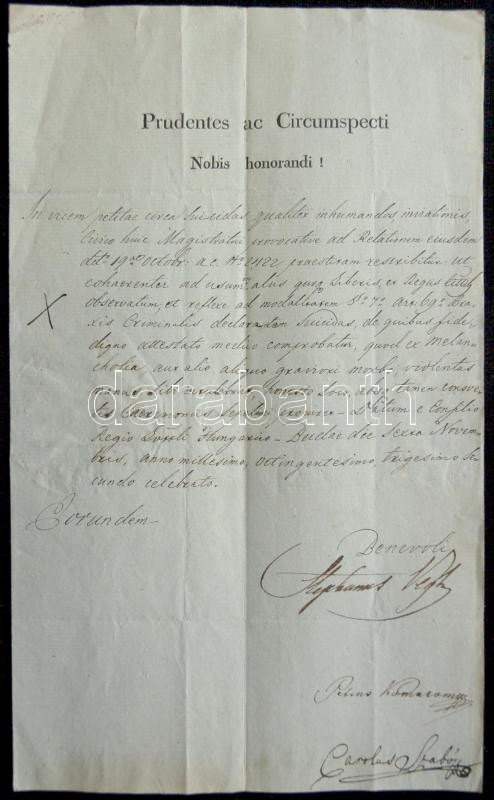 Prudentes ac Circumspecti
Nobis honorandi!
In vicem petitae circa suicidas qualiter inhumandos
Civico huic Magistratui provocative ad Relationem ejusdem
19 Octobr. a. c. No 2422 praestitam rescribitur: Ut
cohaerenter ad usum aliis quoq Liberis, ac Regiis
observatum, et reflexe ad modalitatem
Criminalis declarandam Suicidas, de quibus fide
digno attestato medico comprobatur, quod ex Melan
cholia, aux alio aliquo graviori morbo, violentas
manus sibi honesto Loco, absq tamen consve
tis Caeremoniis Datum e Consilio
Regio Hungarico Budae die Sexta Novem
bris, anno millesimo, octingentesimo, trigesimo se
cundo celebrato.
Eorundem
Benevoli
Stephanus Vegh
Petrus Komaromy
Carolus Szabó
darabanth